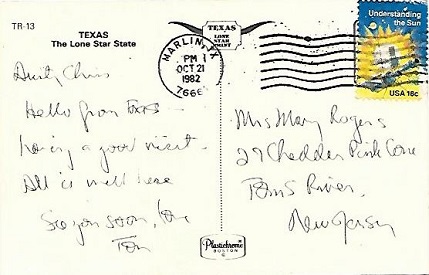 TR-13
TEXAS
The Lone Star State
TEXAS
LONE
STAR
MARLIN, TX
PM
OCT 21
1982
7666
Understanding
the Sun
USA 18c
Hello from Texas
having a good visit.
All is well here
See you soon, love
Tom
Mrs Mary Rogers
29 Cheddar Pink Cone
Toms River,
New Jersey
Plastichrome
BOSTON